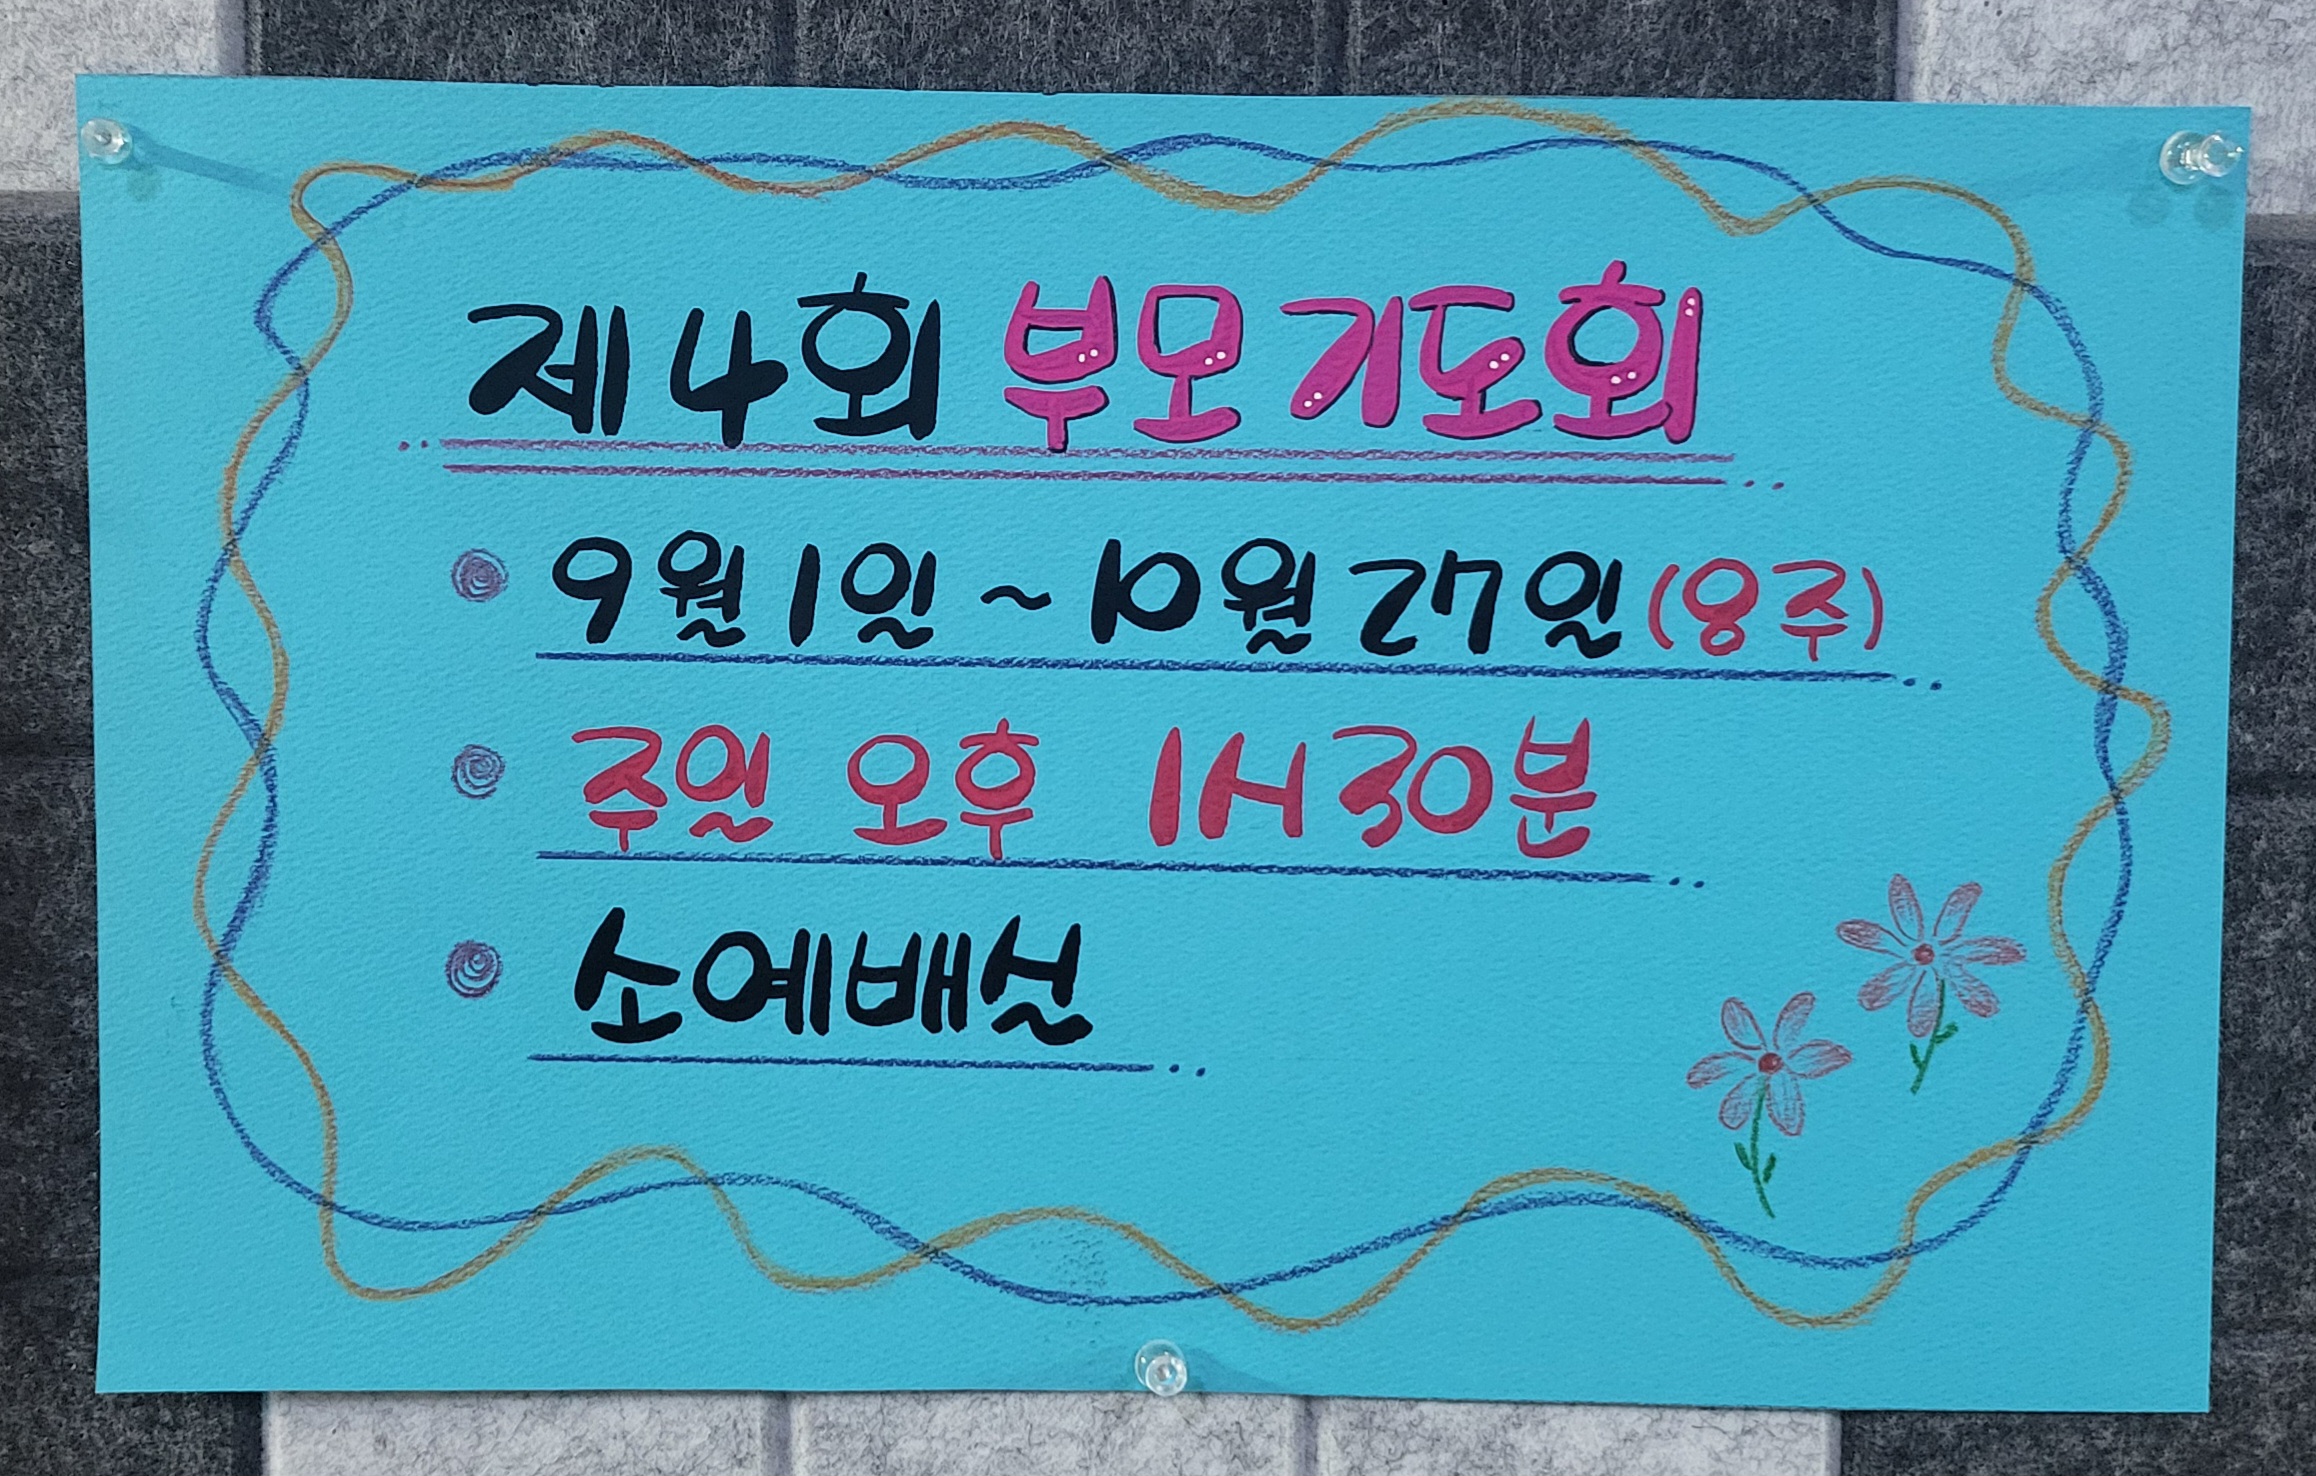 제4회 부모기도회
9월 1일 ~ 10월 27일 (8주)
주일 오후 1시 30분
소예배실